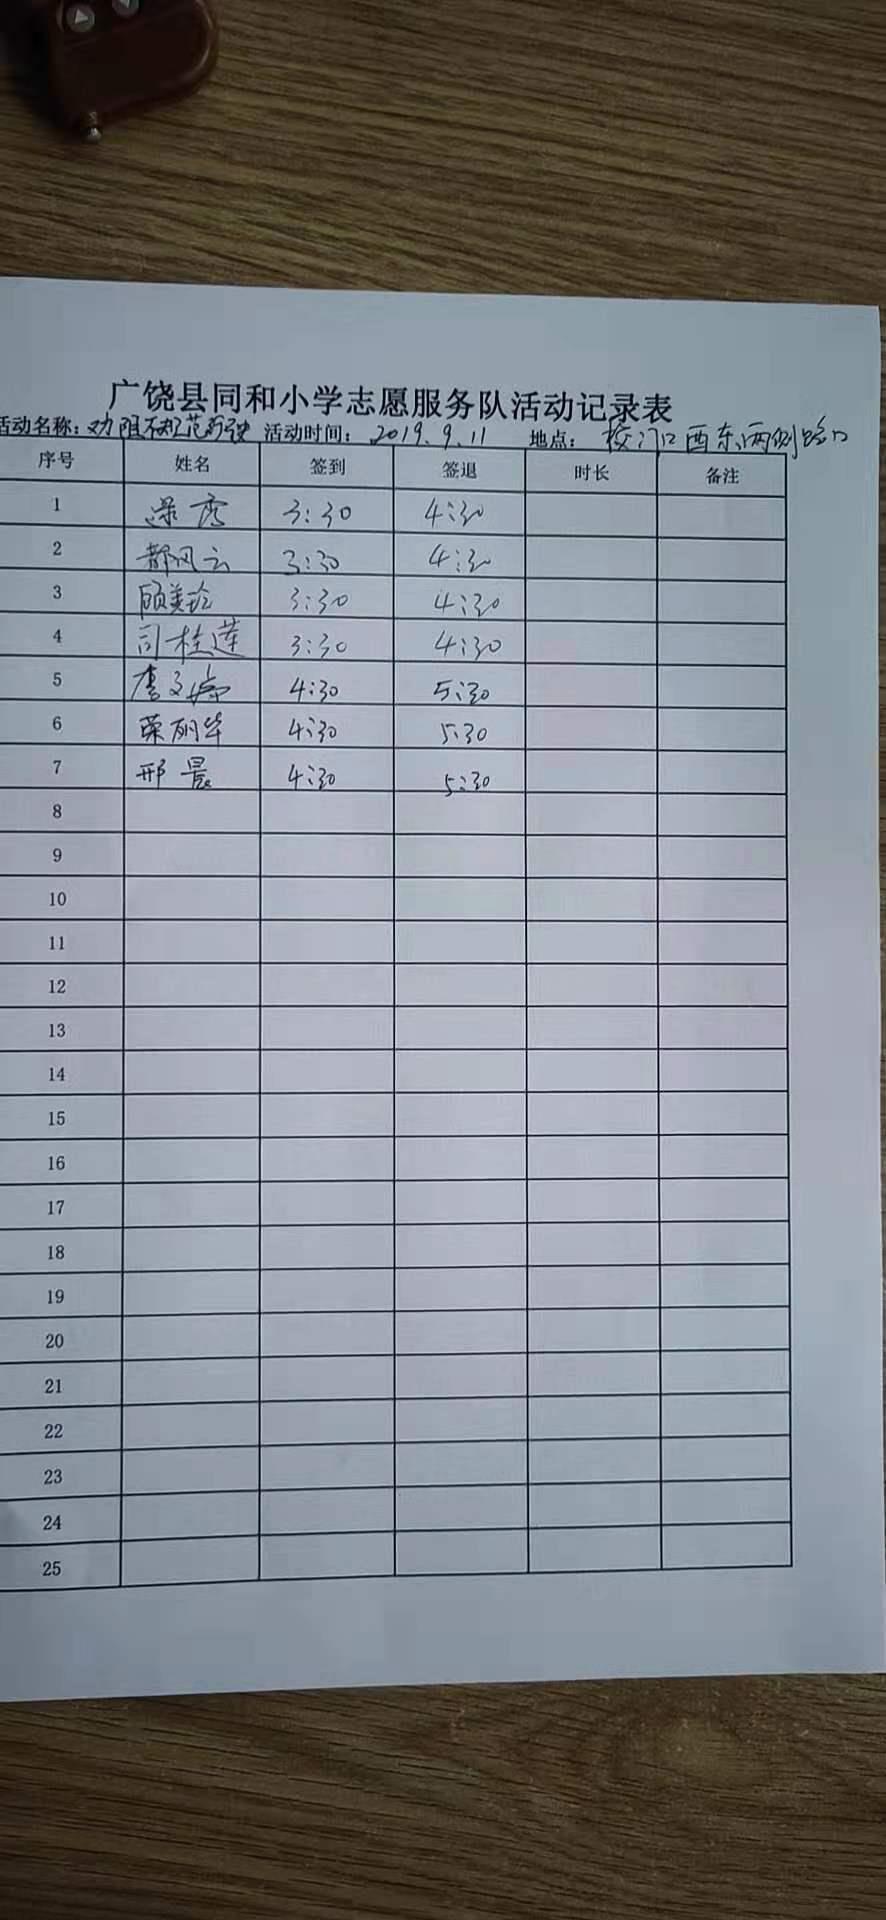 广饶县同和小学志愿服务队活动记录表
活动名称：劝阻不规范 活动时间：2019.9.11 地点：校门口西东两侧路口
序号 姓名 签到 签退 时长 备注
1 梁秀 3:30 4:30
2 都风云 3:30 4:30
3 顾美玲 3:30 4:30
4 司桂莲 3:30 4:30
5 李文 4:30 5:30
6 荣丽华 4:30 5:30
7 邢晨 4:30 5:30
8
9
10
11
12
13
14
15
16
17
18
19
20
21
22
23
24
25